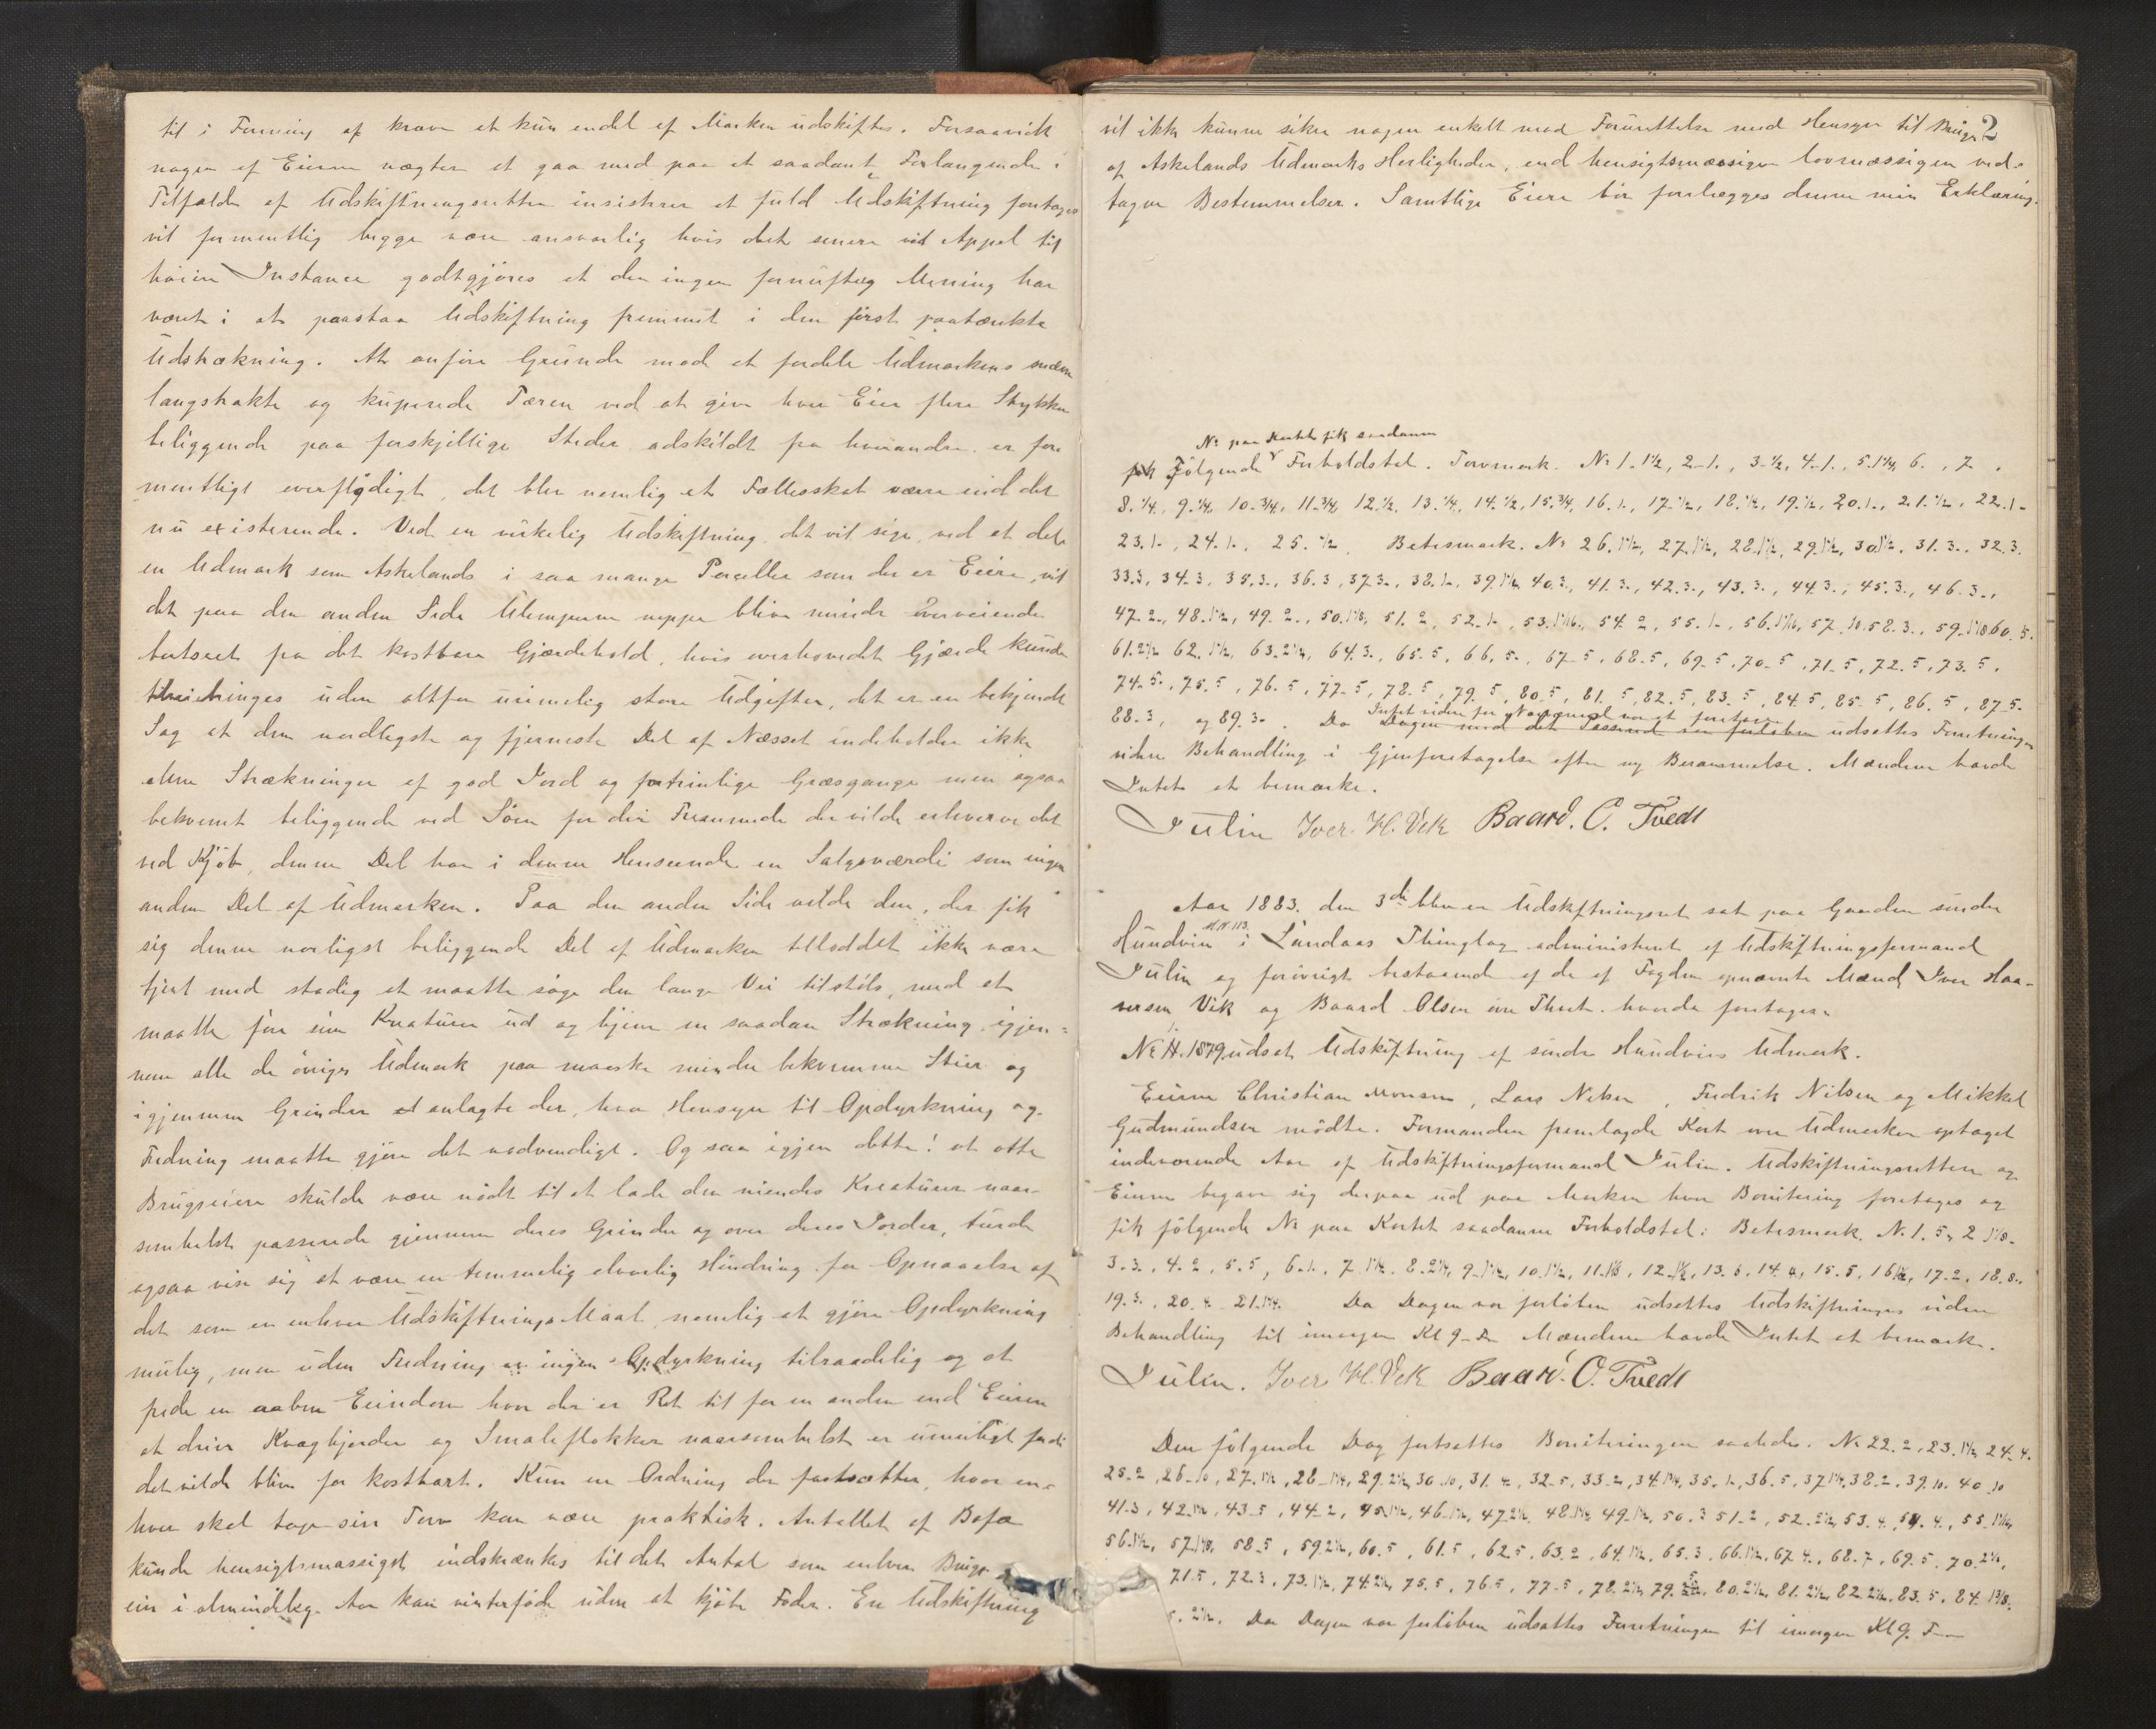 til i Forening af krave at kun endel af Marken udskiftes. Forsaavidt
nogen af Eierne nægter at gaa med paa et saadant Forlangende i
Tilfælde af Udskiftningsretten insisterer at fuld Udskiftning foretages
vil formentlig begge være ansvarlig hvis det senere ved Appel til
høiere Instance godtgjøres at der ingen fornuftig Mening har
været i at paastaa Udskiftning fremmet i den først paatænkte
Udstrækning. At anføre Grunde mod at fordele Udmarkens
langstrakte og kuperede Tæren ved at give hver Eier flere Stykker
beliggende paa forskjellige Steder adskildt fra hverandre er for
mentligt overflødigt, det blev nemlig et Fællesskab værre end det
nu existerende. Ved en virkelig Udskiftning, det vil sige, ved at dele
en Udmark som Askelands i saa mange Parceller som der er Eiere, vil
det paa den anden Side Ulemperne neppe blive mindre overveiende
bortseet fra det kostbare Gjærdehold, hvis overhovedet Gjærde kunde
tilveiebringes uden altfor urimelig store Udgifter, det er en bekjendt
Sag at den nordligste og fjerneste Del af Næsset indeholder ikke
alene Strækninger af god Jord og fortrinlige Græsgange men ogsaa
bekvemt beliggende ved Søen for den Fremmede der vilde erhverve det
ved Kjøb, denne Del har i denne Henseende en Salgsværdi som ingen
anden Del af Udmarken. Paa den anden Side vilde den, der fik
sig denne nordligst beliggende Del af Udmarken tilloddet ikke være
tjent med stadig at maatte søge den lange Vei tilstøls, med at
maatte føre sine Kreature ud og hjem en saadan Strækning igjen=
nem alle de øvriges Udmark paa maaske mindre bekvemme Stier og
igjennem Grinder anlagte der, hvor Hensyn til Opdyrkning og
Fredning maatte gjøre det nødvendigt. Og saa igjen dette! at otte
Brugseiere skulde være nødt til at lade den niendes Kreaturer naar-
somhelst passerede gjennem deres Grinder og over deres Jorder, turde
ogsaa vise sig at være en temmelig alvorlig Hindring for Opnaaelse af
det som er enhver Udskiftnings Maal, nemlig at gjøre Opdyrkning
mulig, men uden Fredning er ingen Opdyrkning tilraadelig og at
frede en aaben Eiendom hvor der er Ret til for en anden end Eieren
at drive Kvæghjorder og Smaleflokker naarsomhelst er umuligt fordi
det vilde blive for kostbart. Kun en Ordning der fastsætter, hvor en-
hver skal tage sin Torv kan være praktisk. Antallet af Bofæ
kunde hensigtsmæssigst indskrænkes til det Antal som enhver
eier i almindelig Aar kan vinterføde uden at kjøbe Foder. En Udskiftning
2
vil ikke kunne sikre nogen enkelt mod Forurettelse med Hensyn til Brugen
af Askelands Udmarks Herligheder, end hensigtsmæssigen lovmæssigen ved-
tagne Bestemmelser. Samtlige Eiere bør forelægges denne min Erklæring.
No paa Kortet fik saadanne
fik Følgende Forholdstal. Torvmark. No 1. 1½, 2-1., 3-½, 4-1., 5.1¼, 6. , 7. ,
8.¼, 9.¼, 10-¾, 11-¾, 12.½, 13.¼, 14.½, 15.¾, 16.1., 17.½, 18.¼, 19.½, 20.1., 21.½, 22.1-
23.1-, 24.1-, 25.½, Beitesmark. No 26.1½, 27.1½, 28.1½, 29.1½, 30.1½, 31.3., 32.3.
33.3, 34.3, 35.3., 36.3, 37.3., 38.1., 39.1½, 40.3., 41.3., 42.3., 43.3., 44.3., 45.3., 46.3.,
47.2., 48.1½, 49.2., 50.1⅛, 51.2, 52.1., 53.1 1/16, 54.2, 55.1., 56.1 1/16, 57.10.58.3., 59.1⅛ 60.5.
61.2½ 62.1½, 63.2½, 64.3., 65.5, 66.5., 67.5, 68.5, 69.5, 70.5, 71.5, 72.5, 73.5,
74.5., 75.5, 76.5, 77.5, 78.5, 79.5, 80.5, 81.5, 82.5, 83.5, 84.5, 85.5, 86.5, 87.5.
Intet videre for Nærværende foretages
88.3, og 89.3. Da Dagen med det Passerede var forløben udsættes Forretningens
videre Behandling i Gjenforetagelse efter ny Berammelse. Mændene havde
Intet at bemærke.
Julin Iver. H. Vik Baard. O. Tvedt
Aar 1883. den 3die blev en Udskiftningsret sat paa Gaarden søndre
M.N.113.
Hundvin i Lindaas Thinglag administreret af Udskiftningsformand
Julin og forøvrigt bestaaende af de af Fogden opnævnte Mænd Iver Haa-
versen Vik og Baard Olsen øvre Thvet. hvorda foretages:
No 11. 1879 udsat Udskiftning af søndre Hundvins Udmark.
Eierne Christian Monsen, Lars Nilsen, Fredrik Nilsen og Mikkel
Gudmundsen mødte. Formanden fremlagde Kort over Udmarken optaget
indeværende Aar af Udskiftningsformand Julin. Udskiftningsretten og
Eierne begave sig derpaa ud paa Marken hvor Bonitering foretoges og
fik følgende No paa Kortet saadanne Forholdstal: Beitesmark. N. 1. 5, 2 1⅛.
3.3., 4.2, 5.5, 6.1., 7.1¼. 8.2½, 9.1½, 10.1½, 11.1⅛, 12.1½, 13.5, 14.4, 15.5, 16.1½, 17.2, 18.8.,
19.3., 20.4. 21.1¼. Da Dagen var forløben udsættes Udskiftningens videre
Behandling til imorgen Kl 9-Fm Mændene havde Intet at bemærke.
Julin. Iver H. Vik Baard. O. Tvedt
Den følgende Dag fortsættes Boniteringen saaledes. No 22.2, 23.1½, 24.4.
25.2, 26.10, 27.1½, 28.1¼, 29.2½, 30.10, 31.4, 32.5, 33.2, 34.1¼, 35.1., 36.5, 37.1¼, 38.2. 39.10. 40.10
41.3, 42.1½, 43.5, 44.2, 45.1½, 46.1½, 47.2½, 48.1¼, 49.1½, 50.3 51.2, 52.2½, 53.4., 54.4., 55.1 1/16,
56.1½, 57.1⅛, 58.5, 59.2½, 60.5, 61.5, 62.5, 63.2, 64.1½, 65.3, 66.1½, 67.4., 68.7, 69.5, 70.2½,
71.5, 72.3, 73.1½, 74.2½, 75.5, 76.5, 77.5, 78.2½, 79.5, 80.2½, 81.2½, 82.2½, 83.5, 84.1⅜.
5.2½. Da Dagen var forløben udsattes Forretningen til imorgen Kl 9. F